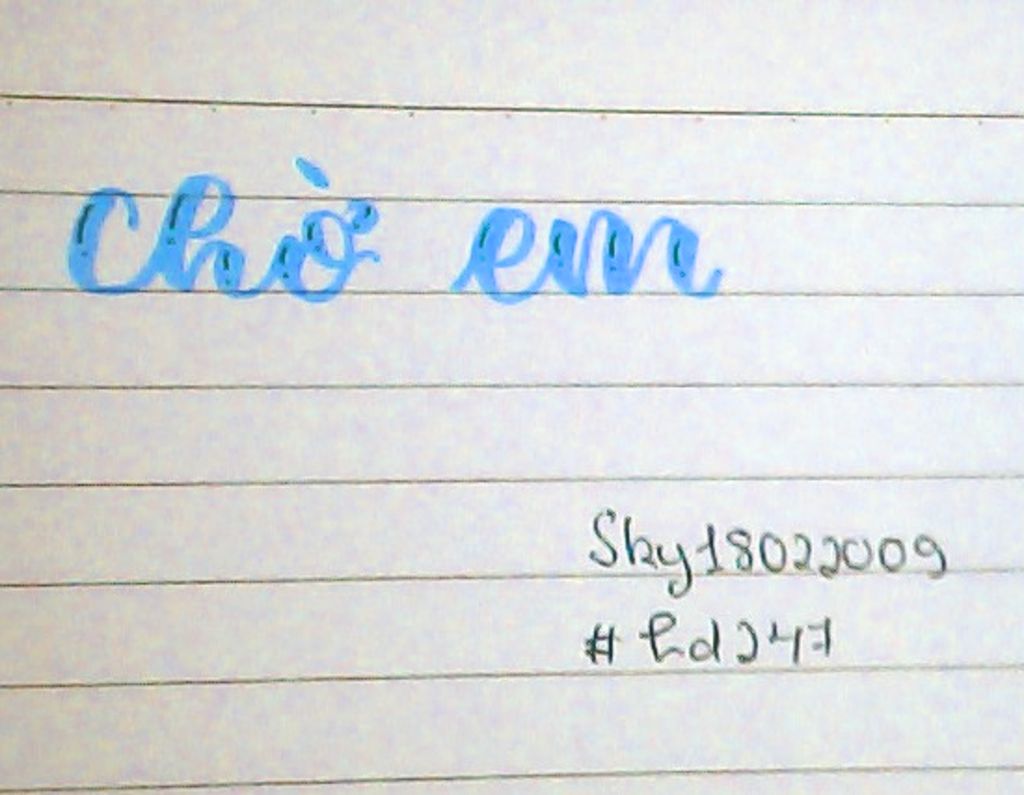 chờ em
Sky18022009
#hd247